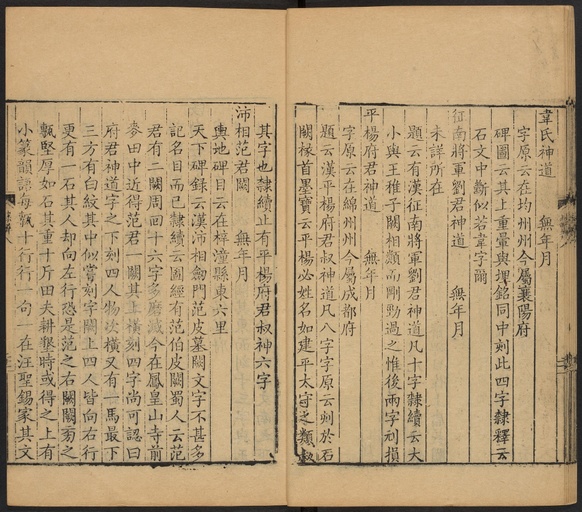 韋氏神道　無年月
字原云在均州州今屬襄陽府
碑圖云其上重暈與㙷銘同中刻此四字隸釋云
石文中斷似若韋字爾
征南將軍劉君神道　無年月
未詳所在
題云有漢征南將軍劉君神道凡十字隸續云大
小與王稚子闕相類而剛勁過之惟後兩字刓損
平楊府君神道　無年月
字原云在綿州州今屬成都府
題云漢平楊府君叔神道凡八字字原云刻於石
闕椽首墨寶云平楊必姓名如建平太守之類叔
其字也隸續止有平楊府君叔神六字
沛相范君闕　無年月
輿地碑目云在梓潼縣東六里
天下碑錄云漢沛相劔門范皮墓闕文字不甚多
記名目而已隸續云圖經有范伯皮闕蜀人云范
君有二闕周回十六字多磨滅今在鳳皇山寺前
麥田中近得范君一闕其上橫刻四字尚可認曰
府君神道字之下刻四人物次橫又有一馬最下
三方有白紋其中似嘗刻字闕上四人皆向右行
更有一石其人却向左行恐是范之右闕闕旁之
甎堅厚如石其重十斤田夫耕墾時或得之上有
小篆韻語每甎十行行一句一在汪聖錫家其文